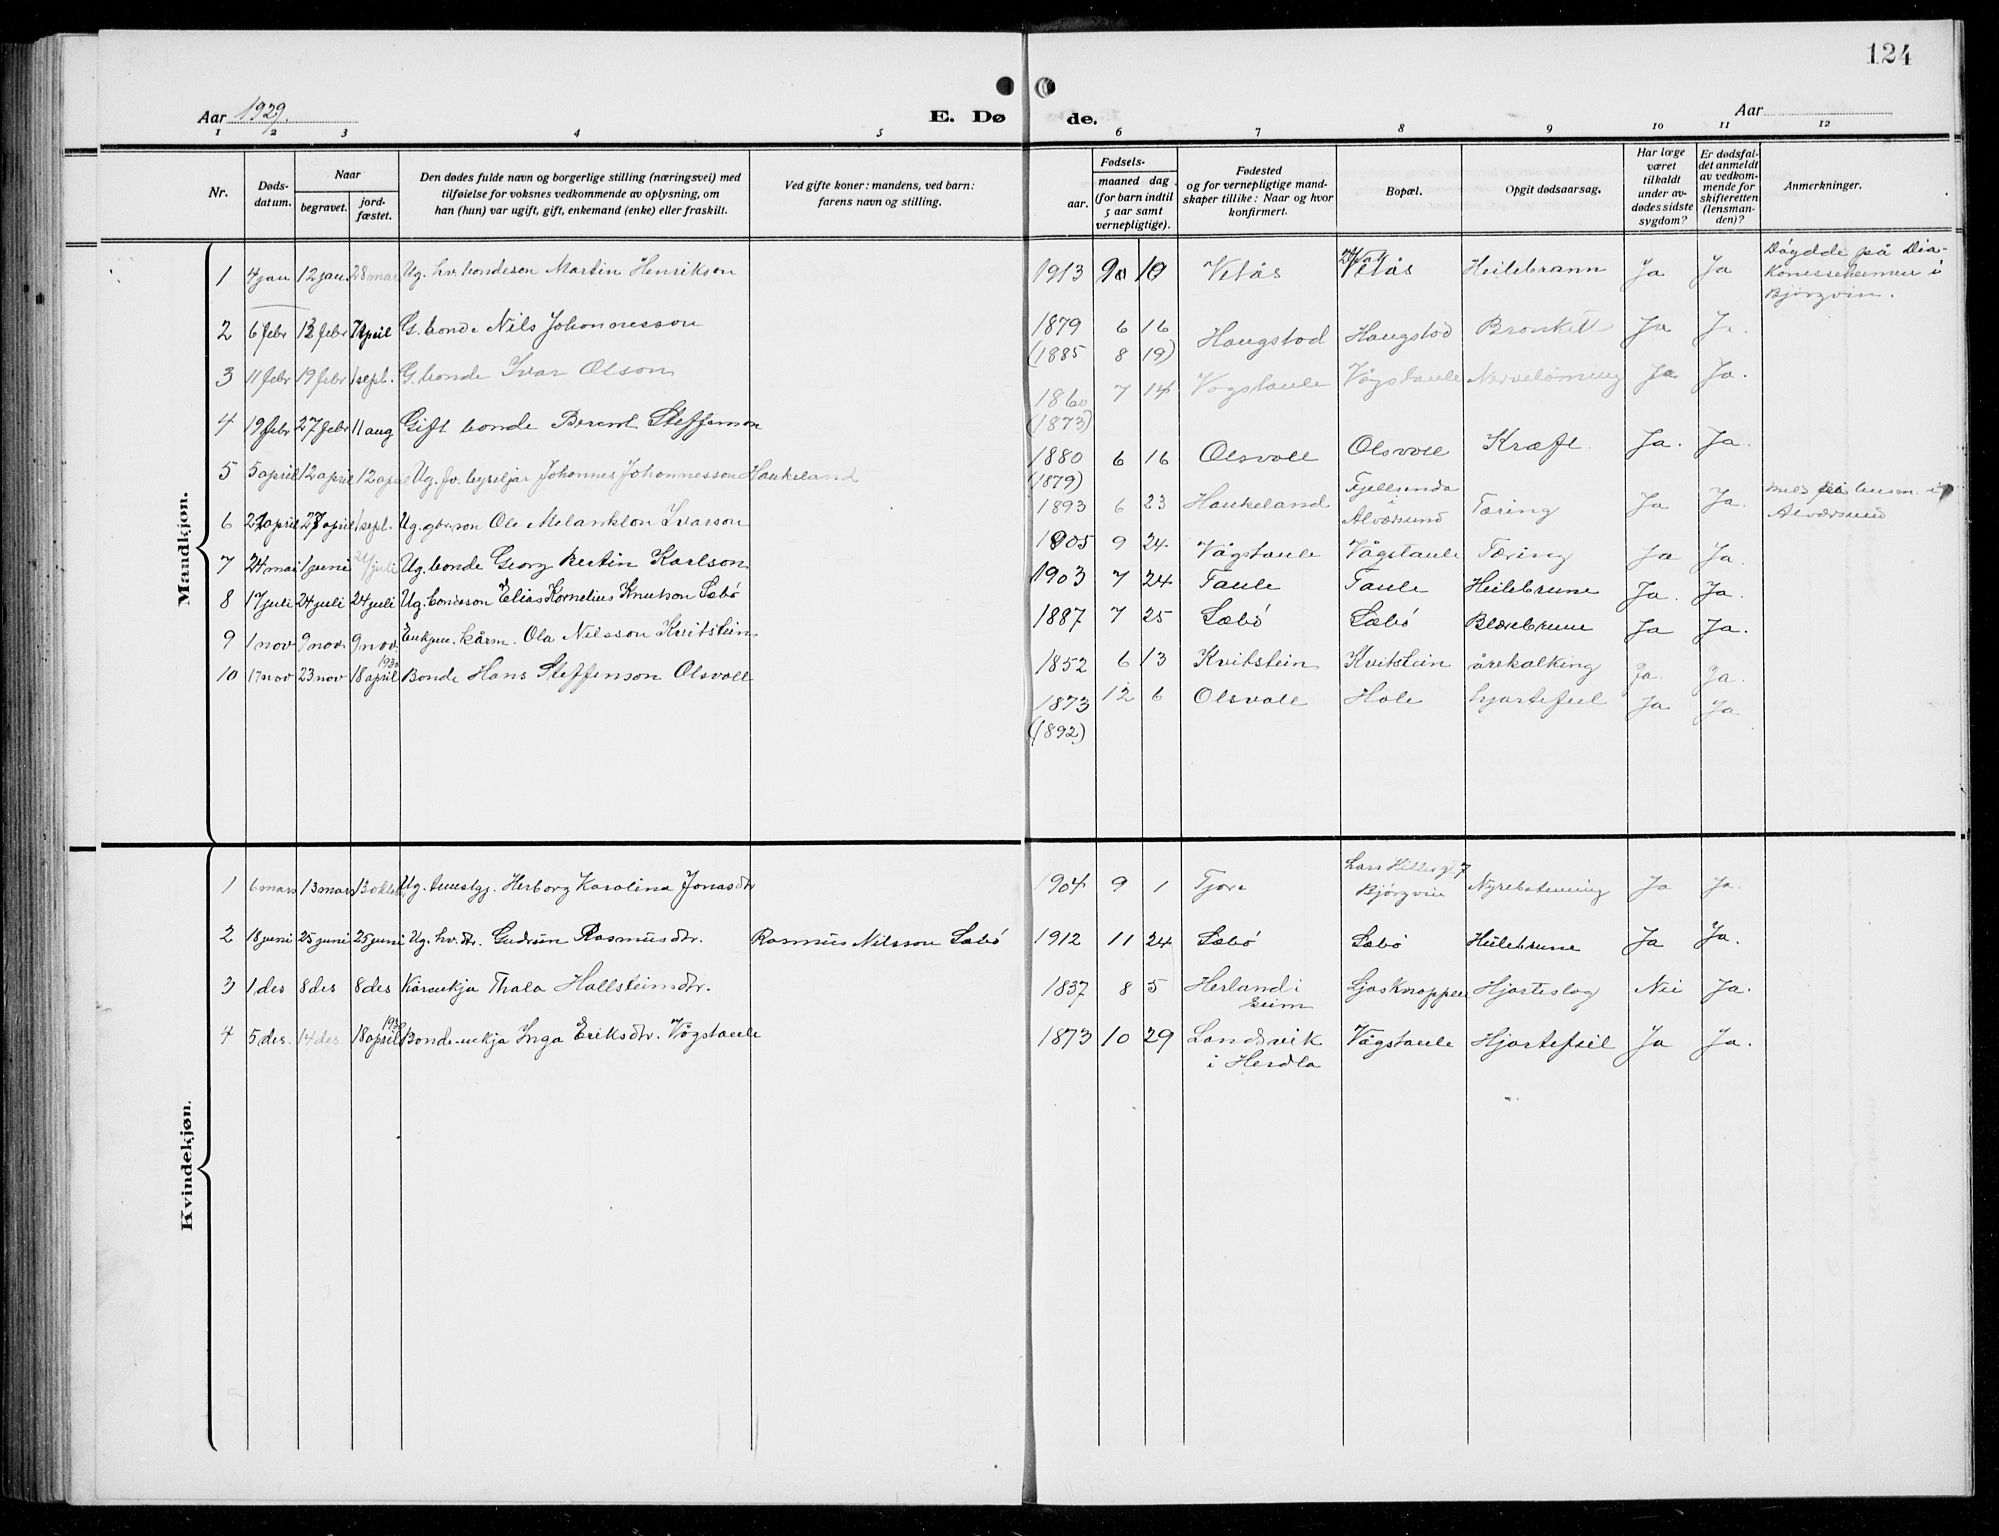 124
Aar 1929.
E. Døde.
Aar
1 2 3 4 5 6 7 8 9 10 11 12
Nr.
Døds-
datum.
Naar
begravet.
jord-
fæstet.
Den dødes fulde navn og borgerlige stilling (næringsvei) med
tilføielse for voksnes vedkommende av oplysning, om
han (hun) var ugift, gift, enkemand (enke) eller fraskilt.
Ved gifte koner: mandens, ved barn:
farens navn og stilling.
Fødsels-
aar.
maaned dag
(for barn indtil
5 aar samt
vernepligtige).
Fødested
og for vernepligtige mand-
skaper tillike: Naar og hvor
konfirmert.
Bopæl.
Opgit dødsaarsag.
Har læge
været
tilkaldt
under av-
dødes sidste
sygdom?
Er dødsfal-
det anmeldt
av vedkom-
mende for
skifteretten
(lensman-
den)?
Anmerkninger.
Mandkjøn.
1 4 jan 12 jan. 28 mar Ug. hv. bondeson Martin Henrikson 1913 10 Vetås Vetås Heilebrann Ja Ja Døydde på Dia-
konisseheimen i
Bjørgvin.
2 6 febr 13 febr 7 april G. bonde Nils Johannesson 1879 6 16 Haugstod Haugstod Bronkitt Ja Ja.
(1885 8 19)
3 11 febr 19 febr 1 sept. G. bonde Ivar Olson 1860 7 14 Vågstaule Vågstaule Nervelømming Ja Ja.
(1873)
4 19 febr 27 febr 11 aug Gift bonde Berent Steffenson 1880 6 16 Olsvoll Olsvoll Kræft. Ja. Ja.
(1879)
5 5 april 12 april 12 april Ug. fv. Johannes Johannesson Haukeland 1893 6 23 Haukeland Fjellsenda
i
Alversund Tæring Ja Ja. i
Alversund
6 april april 1 sept. Ug. gbr. son Ole Melankton Ivarson 1905 9 24 Vågstaule Vågstaule Tæring Ja Ja.
7 24 mai 1 juni 21/juli Ug. bonde Georg Bertin Karlson 1903 7 24 Taule Taule Heilebrune Ja. Ja.
8 17 juli 24 juli 24 juli Ug. bondeson Elias Kornelius Knutson Sæbø 1887 7 25 Sæbø Sæbø Blærebrune Ja Ja.
9 1 nov 9 nov. 9 nov. Enkjem. kårm. Ola Nilsson Kvitstein 1852 6 13 Kvitstein Kvitstein årekalking Ja. Ja.
10 17 nov 23 nov 18 april 1930 Bonde Hans Steffenson Olsvoll 1873 12 6 Olsvoll Hole hjartefeil Ja Ja
(1892)
Kvindekjøn.
1 6 mars 13 mars 13 oktob Ug. tenestgj. Herborg Karolina Jonasdtr 1904 9 1 Tjore Lars Hillesgt 7
Bjørgvin Nyrebetenning Ja Ja.
2 18 juni 25 juni 25 juni Ug. hv. dtr. Gudrun Rasmusdtr. Rasmus Nilsson Sæbø 1912 11 24 Sæbø Sæbø Heilebrune Ja Ja.
3 1 des 8 des 8 des Kårenkja Thala Hallsteinsdtr. 1837 8 5 Herland i
Seim Ljosknappen Hjarteslag Nei Ja.
4 5 des. 14 des. 18 april 1930 Bonde-enkja Inga Eriksdtr. Vågstaule 1873 10 29 Landsvik
i Herdla Vågstaule Hjartefeil Ja Ja.